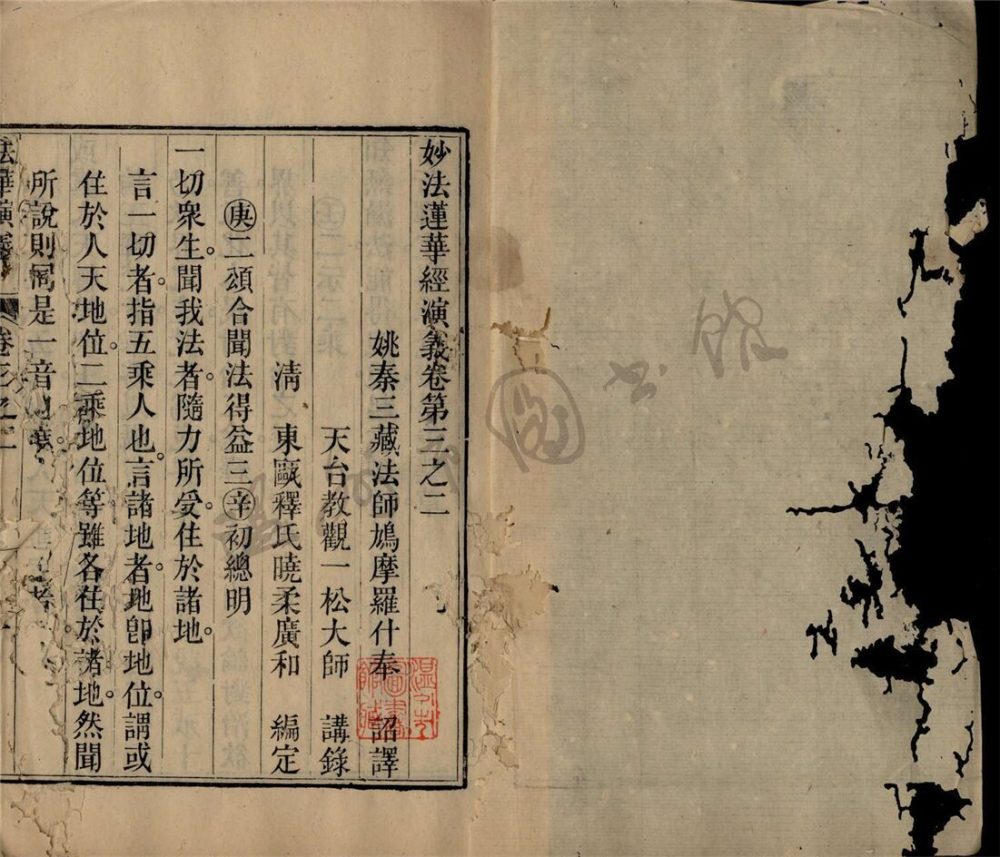 妙法蓮華經演義卷第三之二
姚秦三藏法師鳩摩羅什奉　詔譯
天台教觀一松大師　講錄
清　東甌釋氏曉柔廣和　編定
庚二頌合聞法得益三辛初總明
一切衆生。聞我法者。隨力所受。住於諸地。
言一切者。指五乘人也。言諸地者。地卽地位。謂或
住於人天地位。二乘地位等。雖各住於諸地。然聞
所說則同是一音
法華演義　卷三之二